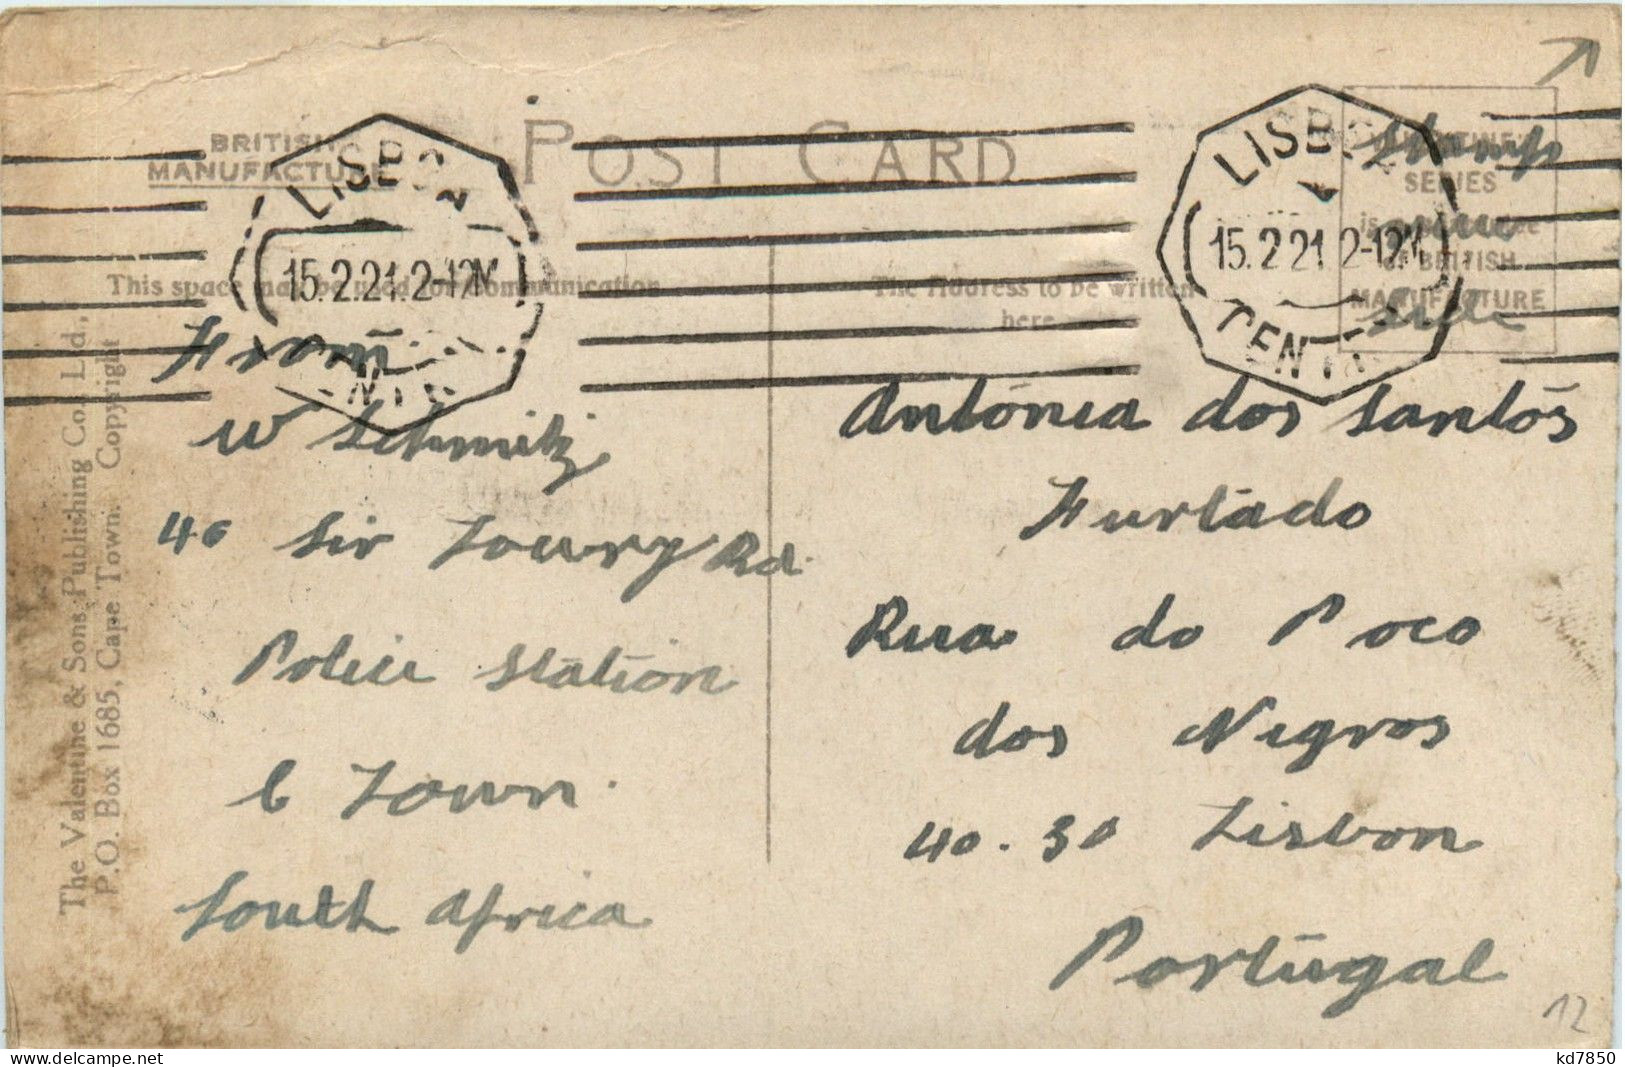 BRITISH
MANUFACTURE
POST CARD
LISBON
15.2.21.2-12M
LISBO
15.2.21 2-12M
CENT
SERIES
is
BRITISH
MANUFACTURE
This space may be used for communication
The Address to be written
here
Stamp
other
side
From
W Schmitz
46 Sir Lowry Rd.
Police Station
C Town.
South Africa
Antónia dos Santos
Furtado
Rua do Poco
dos Negros
40.3º Lisbon
Portugal
The Valentine & Sons Publishing Co. Ltd.,
P.O. Box 1685, Cape Town. Copyright
12
kd7850